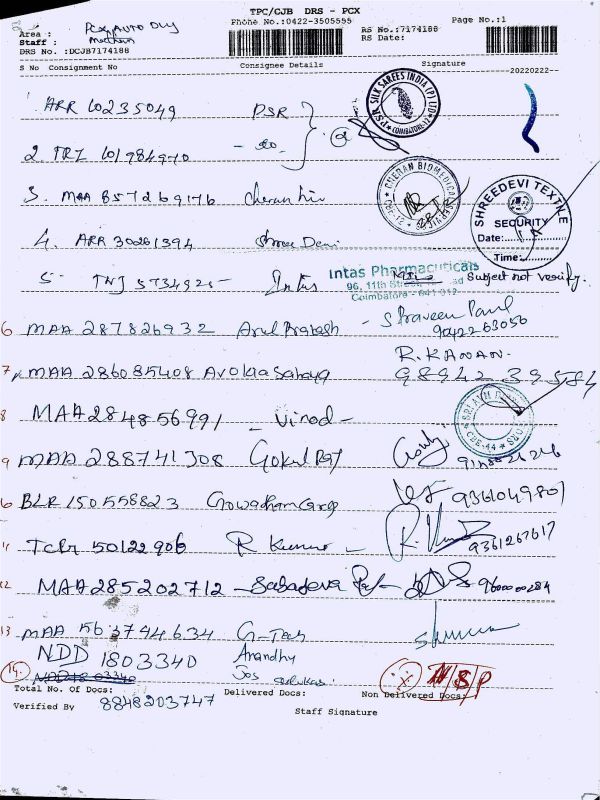 TPC/CJB DRS - PCX
PCX AUTO DLY
Phone No.:0422-3505555
Page No.:1
Area :
Staff :
RS No.:7174188
RS Date:
DRS No. :DCJB7174188
S No Consignment No Consignee Details Signature
20220222
1. ARR 10235049 PSR
PSR SILK SAREES INDIA (P) LTD
COIMBATORE-12
2. TRZ 101984970 - do -
3. MAA 857269176
CHERAN BIOMEDICAL
CBE-12
4. ARR 30261394 Shree Devi
SHREEDEVI TEXTILE
SECURITY
Date:
Time:
5 TNJ 5734925 - Intas
Intas Pharmaceuticals
96, 11th Street
Coimbatore - 641 012
Subject not verify.
6 MAA 287826932 Arul Prakash - S Praveen Paul
9042263056
7 MAA 286085408 Avolaa Sahaya R. KANAN.
98942 39584
8 MAA 284856991 - Vinod -
CBE-44
9 MAA 288741308 Gokul Raj
10 BLR 150558823 9361049807
11 TCR 50122906 R Kumar - 9361267617
12 MAA 285202712 - 9600000284
13 MAA 563744634 G-Tech
NDD 1803340 Anandhy
14. Jos alukas
NBP
Total No. Of Docs: Delivered Docs: Non Delivered Docs:
Verified By 8848203747
Staff Signature